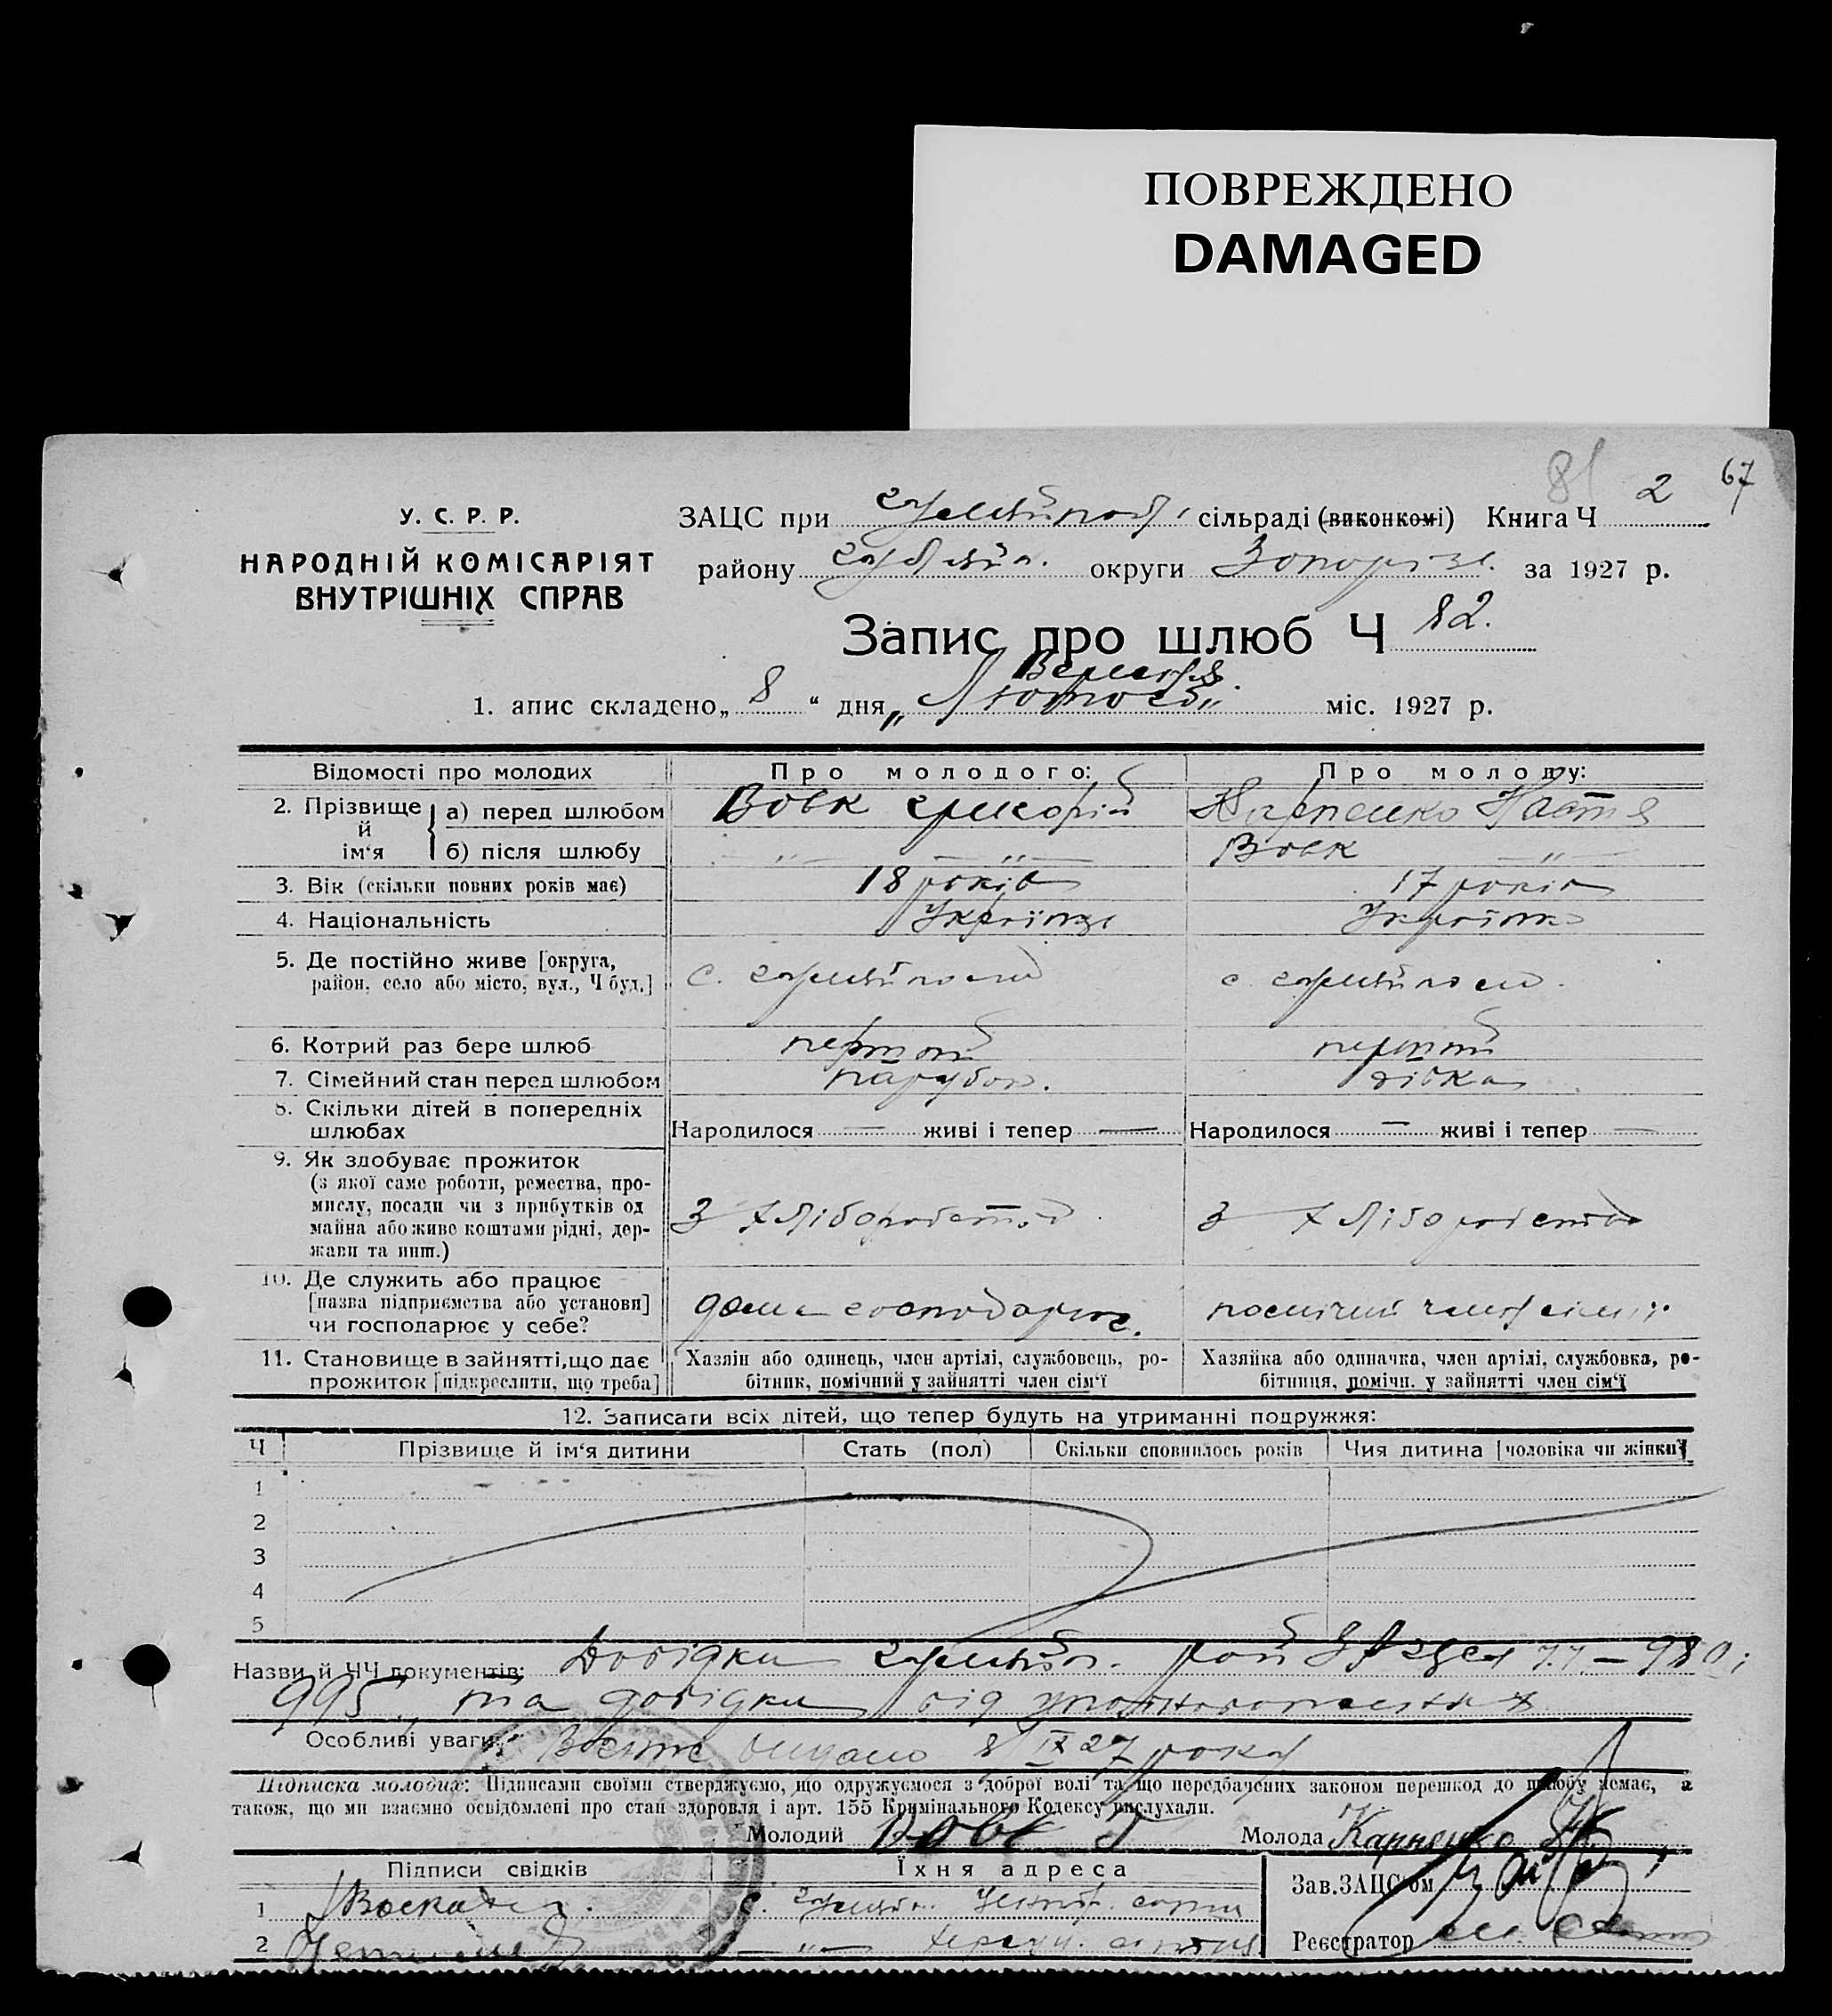 ПОВРЕЖДЕНО
DAMAGED
81 2 67
У. С. Р. Р.
НАРОДНІЙ КОМІСАРІЯТ
ВНУТРІШНІХ СПРАВ
ЗАЦС при сільраді (виконкомі) Книга Ч 2
району округи за 1927 р.
Запис про шлюб Ч 82.
Вересня
1. апис складено „ 8 “ дня „ Лютого “ міс. 1927 р.
Відомості про молодих Про молодого: Про молоду:
2. Прізвище й ім‘я а) перед шлюбом Вовк Григорій Карпенко Настя
б) після шлюбу — „ — — „ — Вовк — „ —
3. Вік (скільки повних років має) 18 років 17 років
4. Національність Українець Українка
5. Де постійно живе [округа, с. с.
район, село або місто, вул., Ч буд.]
6. Котрий раз бере шлюб перший перший
7. Сімейний стан перед шлюбом парубок. дівка
8. Скільки дітей в попередніх
шлюбах Народилося — живі і тепер — Народилося — живі і тепер —
9. Як здобуває прожиток
(з якої саме роботи, ремества, про-
мислу, посади чи з прибутків од З хліборобства З хліборобства
майна або живе коштами рідні, дер-
жави та инш.)
10. Де служить або працює
[назва підприємства або установи] дома господарює. помічний член сім'ї
чи господарює у себе?
11. Становище в зайнятті, що дає Хазяїн або одинець, член артілі, службовець, ро- Хазяйка або одиначка, член артілі, службовка, ро-
прожиток [підкреслити, що треба] бітник, помічний у зайнятті член сім‘ї бітниця, помічн. у зайнятті член сім‘ї
12. Записати всіх дітей, що тепер будуть на утриманні подружжя:
Ч Прізвище й ім‘я дитини Стать (пол) Скільки сповнилось років Чия дитина [чоловіка чи жінки]
1
2
3
4
5
Назви й ЧЧ документів: Довідки 980;
995, та довідки від
Особливі уваги: видано 8/IX 27 року
Підписка молодих: Підписами своїми стверджуємо, що одружуємося з доброї волі та що передбачених законом перешкод до шлюбу немає, а
також, що ми взаємно освідомлені про стан здоровля і арт. 155 Кримінального Кодексу вислухали.
Молодий Вовк Молода Карпенко
Підписи свідків Їхня адреса
Зав. ЗАЦС‘ом
1 с.
2 — „ — Реєстратор